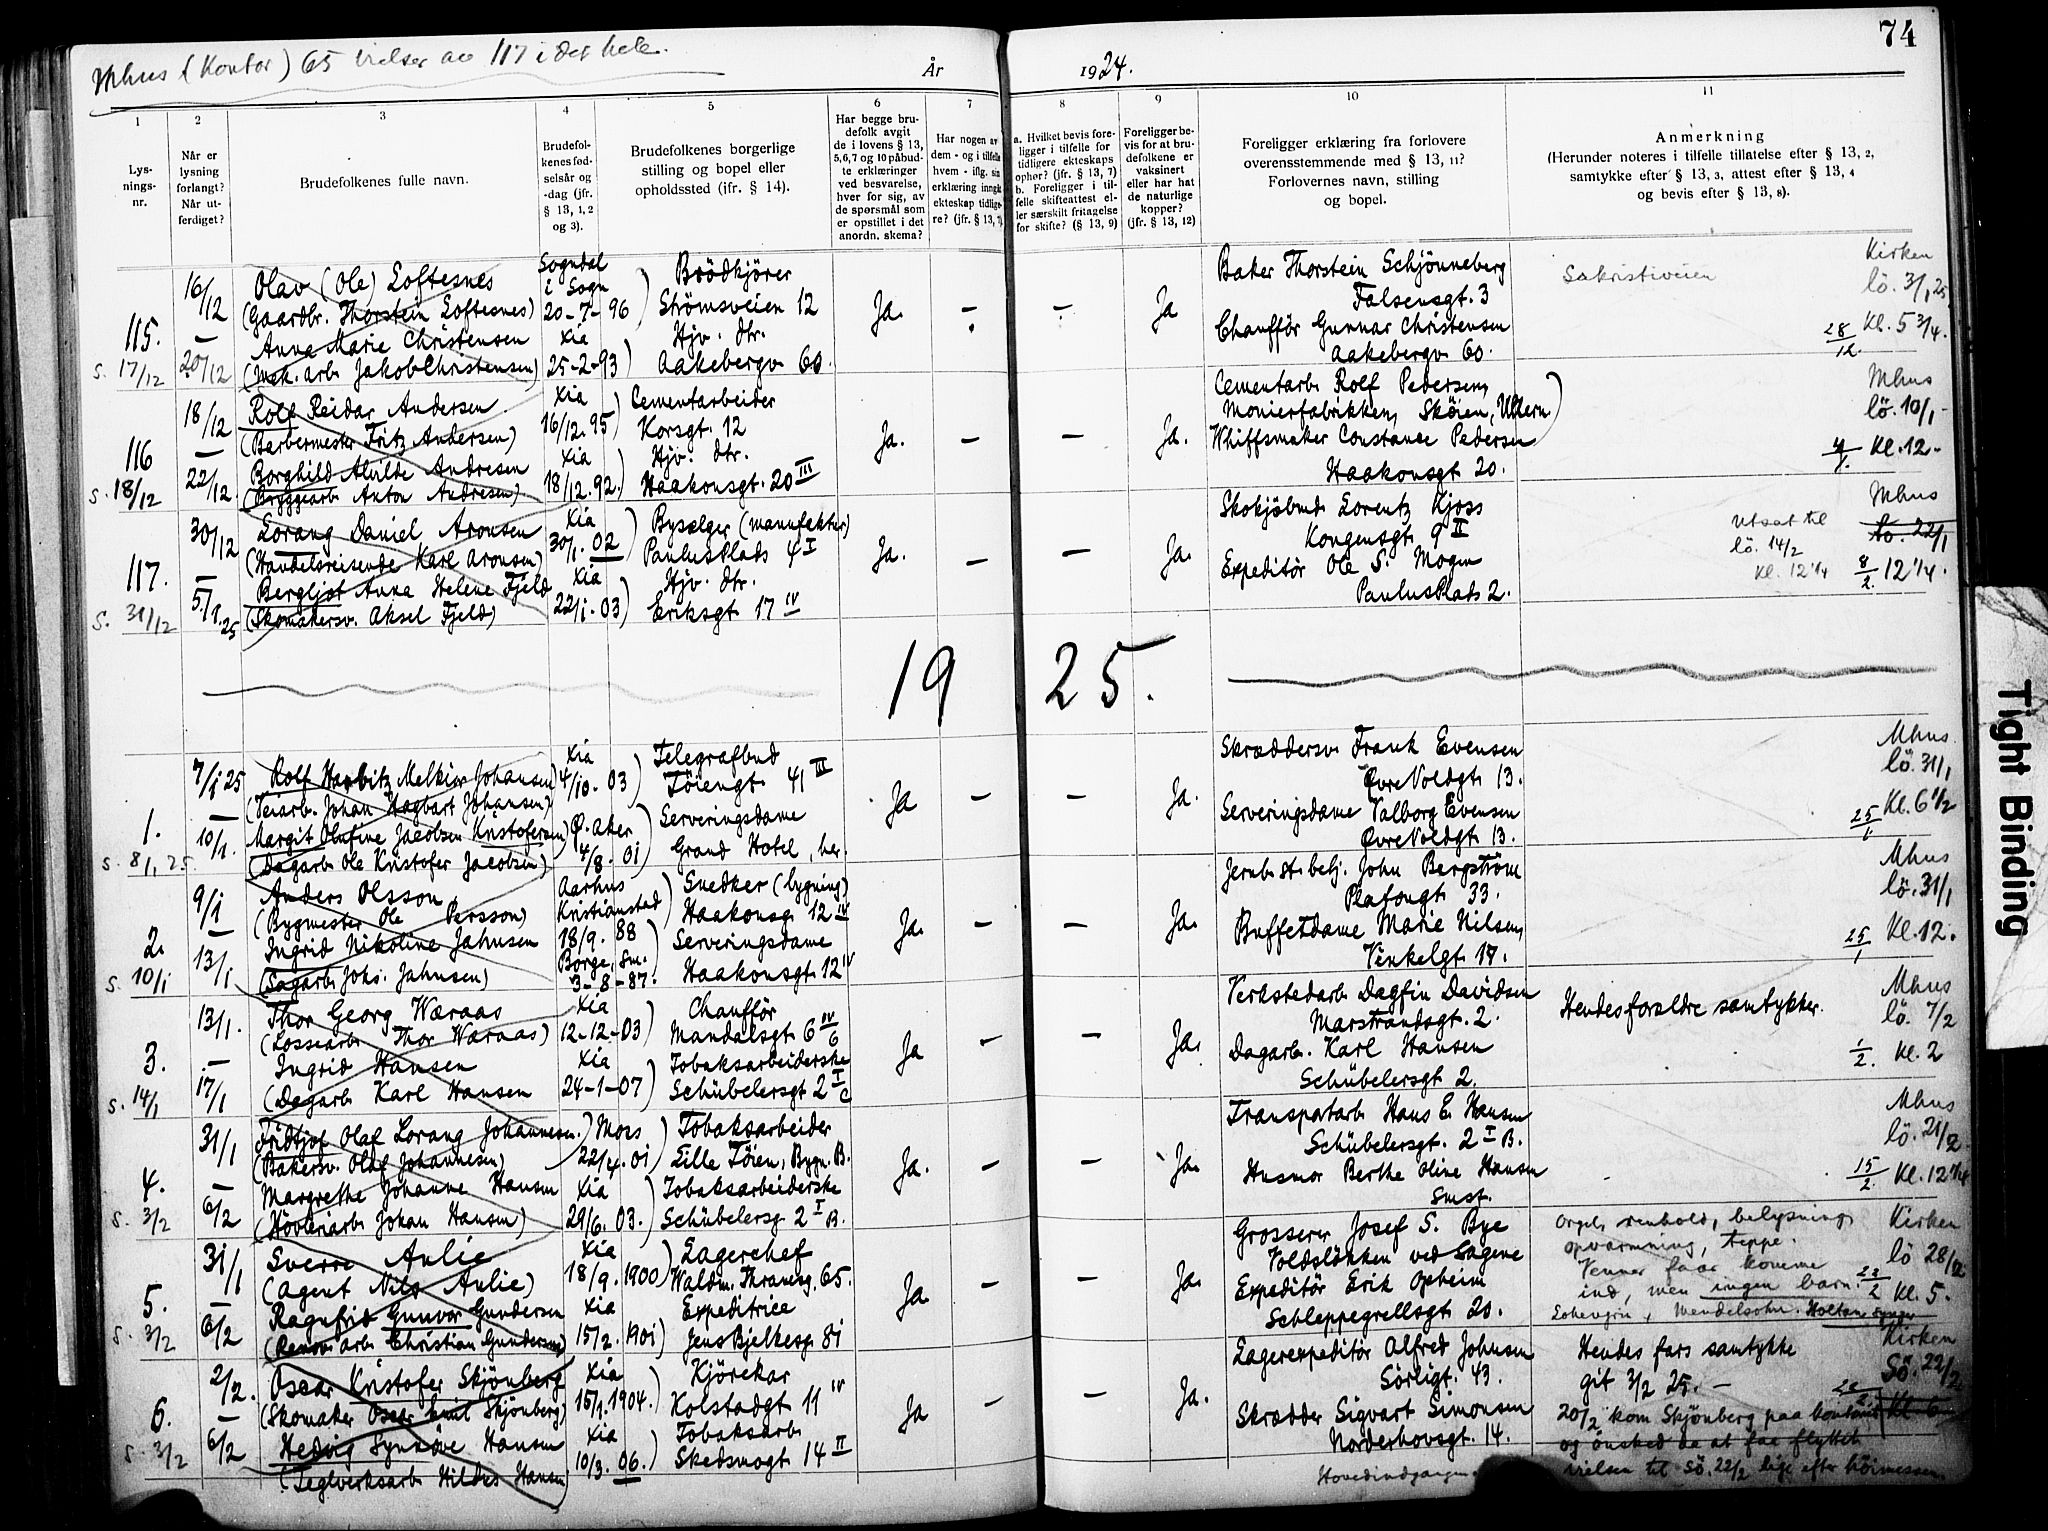 74
Mhus (Kontor) 65 vielser av 117 i det hele.
År
1924.
1
2
3
4
5
6
7
8
9
10
11
Lys-
nings-
nr.
Når er
lysning
forlangt?
Når ut-
ferdiget?
Brudefolkenes fulle navn.
Brudefol-
kenes fød-
selsår og
-dag (jfr.
§ 13, 1, 2
og 3).
Brudefolkenes borgerlige
stilling og bopel eller
opholdssted (ifr. § 14).
Har begge bru-
defolk avgit
de i lovens § 13,
5,6,7 og 10 påbud-
te erklæringer
ved besvarelse,
hver for sig, av
de spørsmål som
er opstillet i det
anordn. skema?
Har nogen av
dem - og i tilfelle
hvem - iflg. sin
erklæring inngå
ekteskap tidlige-
re? (jfr. § 13, 7)
a. Hvilket bevis fore-
ligger i tilfelle for
tidligere ekteskaps
ophør? (jfr. § 13, 7)
b. Foreligger i til-
felle skifteattest el-
ler særskilt fritagelse
for skifte? (§ 13, 9)
Foreligger be-
vis for at bru-
defolkene er
vaksinert
eller har hat
de naturlige
kopper?
(jfr. § 13, 12)
Foreligger erklæring fra forlovere
overensstemmende med § 13, 11?
Forlovernes navn, stilling
og bopel.
Anmerkning
(Herunder noteres i tilfelle tillatelse efter § 13, 2,
samtykke efter § 13, 3, attest efter § 13, 4
og bevis efter § 13, 8).
115.
s. 17/12
16/12
—
20/12
Olav (Ole) Loftesnes
(Gaardbr. Thorstein Loftesnes)
Anna Marie Christensen
(Mek. arb. Jakob Christensen)
Sogndal
i Sogn
20-7-96
Xia
25-2-93
Brödkjörer
Strömsveien 12
Hjv. dtr.
Aakebergv. 60.
Ja.
—
—
Ja
Baker Thorstein Schjönneberg
Falsensgt. 3
Chaufför Gunnar Christensen
Aakebergv. 60.
Sakristiveien
Kirken
lö. 3/1 25
Kl. 5 3/4.
28/12.
116
s. 18/12
18/12
—
22/12.
Rolf Reidar Andersen
(Barbermester Fritz Andersen)
Borghild Alvilde Andresen
(Bryggearb. Anton Andresen)
Xia
16/12. 95
Xia
18/12. 92.
Cementarbeider
Korsgt. 12
Hjv. dtr.
Haakonsgt. 20 III
Ja.
—
—
Ja.
Cementarb. Rolf Pedersen,
Monierfabrikken, Sköien, Ullern
Whiffsmaker Constance Pedersen
Haakonsgt 20.
Mhus
lö. 10/1 -
Kl. 12.
117.
s. 31/12
30/12
—
5/1. 25
Lorang Daniel Aronsen
(Handelsreisende Karl Aronsen)
Bergljot Anna Helene Fjeld
(Skomakersv. Aksel Fjeld)
Xia
30/1. 02
Xia
22/1 - 03
Byselger (manufaktur)
Paulus Plads 4 I
Hjv. dtr.
Eriksgt. 17 IV
Ja.
—
—
Ja.
Skokjöbmd Lorentz Kjoss
Kongensgt. 9 II
Expeditör Ole S. Mogen
Paulus Plads 2.
Utsat til
lö. 14/2
Kl. 12 1/4
Mhus
to. 22/1
8/2. 12 1/4.
19 25.
1.
s. 8/1, 25.
7/1 25
—
10/1.
Rolf Harbitz Melkior Johansen
(Verarb. Johan Hagbart Johansen)
Margit Olufine Jacobsen Kristofersen
(Dagarb. Ole Kristofer Jacobsen)
Xia
4/10. 03
Ø. Aker
4/8. 01
Telegrafbud
Töiengt. 41 III
Serveringsdame
Grand Hotel, her.
Ja
—
—
Ja.
Skræddersv. Frank Evensen
Øvre Voldgt. 13.
Serveringsdame Valborg Evensen
Øvre Voldgt. 13.
Mhus.
lö. 31/1
Kl. 6 1/2
25/1
2.
s. 10/1
9/1
—
13/1
Anders Olsson
(Bygmester Ole Persson)
Ingrid Nikoline Jahnsen
(Sagarb. Johs. Jahnsen)
Aarhus
Kristianstad
18/9. 88
Borge, Sm.
3-8-87.
Snedker (bygning)
Haakonsg. 12 IV
Serveringsdame
Haakonsgt. 12 IV
Ja.
—
—
Ja.
Jernb. st. betj. John Bergström
Platongt. 33.
Buffetdame Marie Nilsen,
Vinkelgt. 17.
Mhus
lö. 31/1
Kl. 12.
25/1
3.
s. 14/1
13/1.
—
17/1
Thor Georg Wæraas
(Lossearb. Thor Wæraas)
Ingrid Hansen
(Dagarb. Karl Hansen
Xia
12-12-03
Xia
24-1-07
Chaufför
Mandalsgt. 6 IV
Tobaksarbeiderske
Schübelersgt. 2 I c
Ja
—
—
Ja.
Verkstedarb. Dagfin Davidsen
Marstrandsgt. 2.
Dagarb. Karl Hansen
Schübelersgt. 2.
Hendes forældre samtykker.
Mhus
lö. 7/2
1/2. Kl. 2
4.
s. 3/2
31/1
—
6/2
Fridtjof Olaf Lorang Johannesen.
(Bakersv. Olaf Johannesen)
Margrethe Johanne Hansen
(Høvleriarb. Johan Hansen)
Moss
22/4. 01
Xia
29/6. 03.
Tobaksarbeider
Lille Töien, Bygn. B.
Tobaksarbeiderske
Schübelersg. 2 I B.
Ja.
—
—
Ja.
Transportarb. Hans E. Hansen
Schübelersgt. 2 I B.
Husmor Berthe Oline Hansen
Smst.
Mhus
lö. 21/2
15/2. Kl. 12 1/4
5.
s. 3/2
31/1
—
6/2
Sverre Aulie
(Agent Nils Aulie)
Ragnfrid Gunvor Gundersen
(Renov. arb. Christian Gundersen)
Xia
18/9. 1900
Xia
15/2. 1901
Lagerchef
Waldm. Thranesg. 65.
Expeditrice
Jens Bjelkesg. 81
Ja
—
—
Ja.
Grosserer Josef S. Bye
Voldslökken ved Sagene
Expeditör Erik Opheim
Schleppegrellsgt. 20.
Orgel, renhold, belysning,
opvarmning, teppe.
Venner faar komme
ind, men ingen barn.
Lohengrin, Mendelsohn. Holtan synger
Kirken
lö 28/2
Kl. 5.
6.
s. 3/2
2/2.
—
6/2
Oscar Kristofer Skjönberg
(Skomaker Oscar Emil Skjönberg)
Hedvig Synnöve Hansen
(Teglverksarb. Hildus Hansen)
Xia
15/1. 1904.
Xia
10/3. 06.
Kjörekar
Kolstadgt. 11 IV
Tobaksarb.
Skedsmogt. 14 II
Ja
—
—
Ja.
Lagerexpeditör Alfred Johnsen
Sörligt. 43.
Skrædder Sigvart Simonsen
Norderhovsgt. 14.
Hovedindgangen.
Hendes fars samtykke
git 3/2 25. —
20/2 kom Skjönberg paa kontoret
og önsked da at faa flyttet
vielsen til Sö. 22/2 lige efter höimessen.
Kirken
Sö. 22/2
Kl. 6
Tight Binding